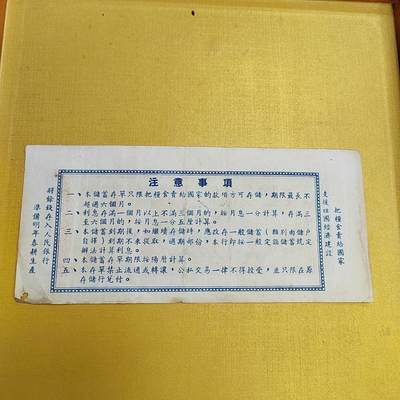 把糧食賣給國家
支援祖國經濟建設
注意事項
一、本儲蓄存單只限把糧食賣給國家的款項方可存儲，期限最長不
超過六個月。
二、利息存滿一個月以上不滿三個月的，按月息一分計算，存滿三
至六個月的，按月息一分五厘計算。
三、本儲蓄到期後，如繼續存儲時，應改存一般儲蓄（種別由儲戶
自擇）到期不來提取，過期部份，本行即按一般定活儲蓄規定
辦法計算利息。
四、本儲蓄存單期限按陽曆計算。
五、本存單禁止流通或轉讓，公私交易一律不得接受，並只限在原
存儲行兌付。
將餘錢存入人民銀行
準備明年春耕生產